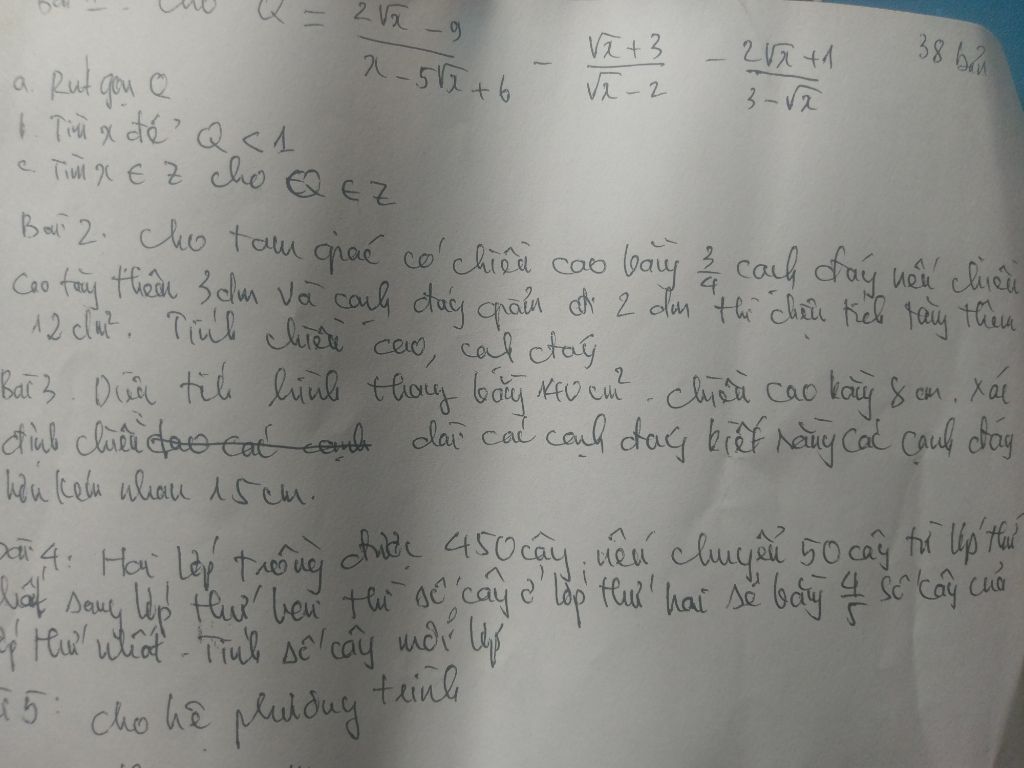 Cho Q = \frac{2\sqrt{x} - 9}{x - 5\sqrt{x} + 6} - \frac{\sqrt{x} + 3}{\sqrt{x} - 2} - \frac{2\sqrt{x} + 1}{3 - \sqrt{x}}
a. Rút gọn Q
b. Tìm x để Q < 1
c. Tìm x ∈ Z cho Q ∈ Z
Bài 2. Cho tam giác có chiều cao bằng \frac{3}{4} cạnh đáy nếu chiều
cao tăng thêm 3dm và cạnh đáy giảm đi 2 dm thì diện tích tăng thêm
12 dm². Tính chiều cao, cạh đáy
Bài 3. Diện tích hình thang bằng 140 cm². chiều cao bằng 8 cm. Xác
định chiều dài các cạnh đáy biết rằng các cạnh đáy
hơn kém nhau 15 cm.
Bài 4: Hai lớp trồng được 450 cây, nếu chuyển 50 cây từ lớp thứ
nhất sang lớp thứ hai thì số cây ở lớp thứ hai sẽ bằng \frac{4}{5} số cây của
lớp thứ nhất. Tính số cây mỗi lớp
Bài 5: Cho hệ phương trình